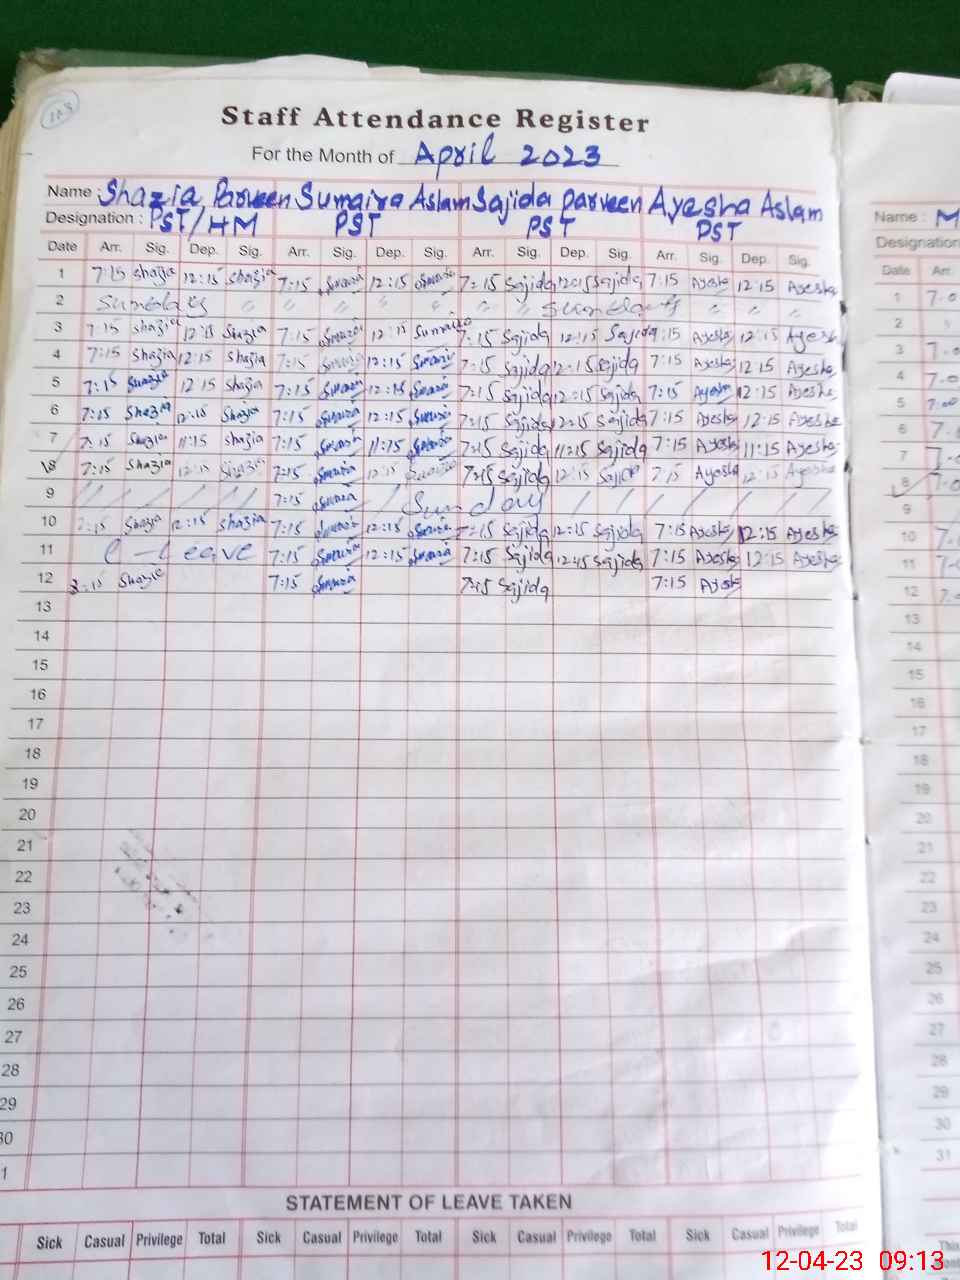 108
Staff Attendance Register
For the Month of April 2023
Name : Shazia Parveen Sumaira Aslam Sajida Parveen Ayesha Aslam
Designation : PST/HM PST PST PST
Date Arr. Sig. Dep. Sig. Arr. Sig. Dep. Sig. Arr. Sig. Dep. Sig. Arr. Sig. Dep. Sig.
1 7:15 Shazia 12:15 Shazia 7:15 Sumaira 12:15 Sumaira 7:15 Sajida 12:15 Sajida 7:15 Ayesha 12:15 Ayesha
2 Sunday " " " " " Sunday " " "
3 7:15 Shazia 12:15 Shazia 7:15 Sumaira 12:15 Sumaira 7:15 Sajida 12:15 Sajida 7:15 Ayesha 12:15 Ayesha
4 7:15 Shazia 12:15 Shazia 7:15 Sumaira 12:15 Sumaira 7:15 Sajida 12:15 Sajida 7:15 Ayesha 12:15 Ayesha
5 7:15 12:15 Shazia 7:15 Sumaira 12:15 Sumaira 7:15 Sajida 12:15 Sajida 7:15 Ayesha 12:15 Ayesha
6 7:15 Shazia 12:15 Shazia 7:15 Sumaira 12:15 Sumaira 7:15 Sajida 12:15 Sajida 7:15 Ayesha 12:15 Ayesha
7 7:15 Shazia 11:15 Shazia 7:15 Sumaira 11:15 Sumaira 7:15 Sajida 11:15 Sajida 7:15 Ayesha 11:15 Ayesha
8 7:15 Shazia 12:15 Shazia 7:15 Sumaira 12:15 Sumaira 7:15 Sajida 12:15 Sajida 7:15 Ayesha 12:15 Ayesha
9 7:15 Sumaira Sunday
10 7:15 Shazia 12:15 Shazia 7:15 Sumaira 12:15 Sumaira 7:15 Sajida 12:15 Sajida 7:15 Ayesha 12:15 Ayesha
11 C-Leave 7:15 Sumaira 12:15 Sumaira 7:15 Sajida 12:15 Sajida 7:15 Ayesha 12:15 Ayesha
12 Shazia 7:15 Sumaira 7:15 Sajida 7:15 Ayesha
13
14
15
16
17
18
19
20
21
22
23
24
25
26
27
28
29
30
31
STATEMENT OF LEAVE TAKEN
Sick Casual Privilege Total Sick Casual Privilege Total Sick Casual Privilege Total Sick Casual Privilege Total
Name : M
Designation
Date Arr.
1 7:0
2
3 7:0
4 7:0
5 7:00
6 7:0
7 7:0
8 7:0
9
10 7:0
11 7:0
12 7:0
13
14
15
16
17
18
19
20
21
22
23
24
25
26
27
28
29
30
31
This
12-04-23 09:13